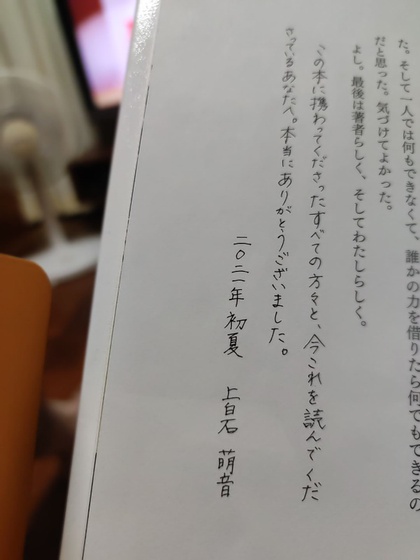 た。そして一人では何もできなくて、誰かの力を借りたら何でもできるの
だと思った。気づけてよかった。
よし。最後は著者らしく、そしてわたしらしく。
この本に携わってくださったすべての方々と、今これを読んでくだ
さっているあなたへ。本当にありがとうございました。
二〇二一年 初夏 上白石 萌音